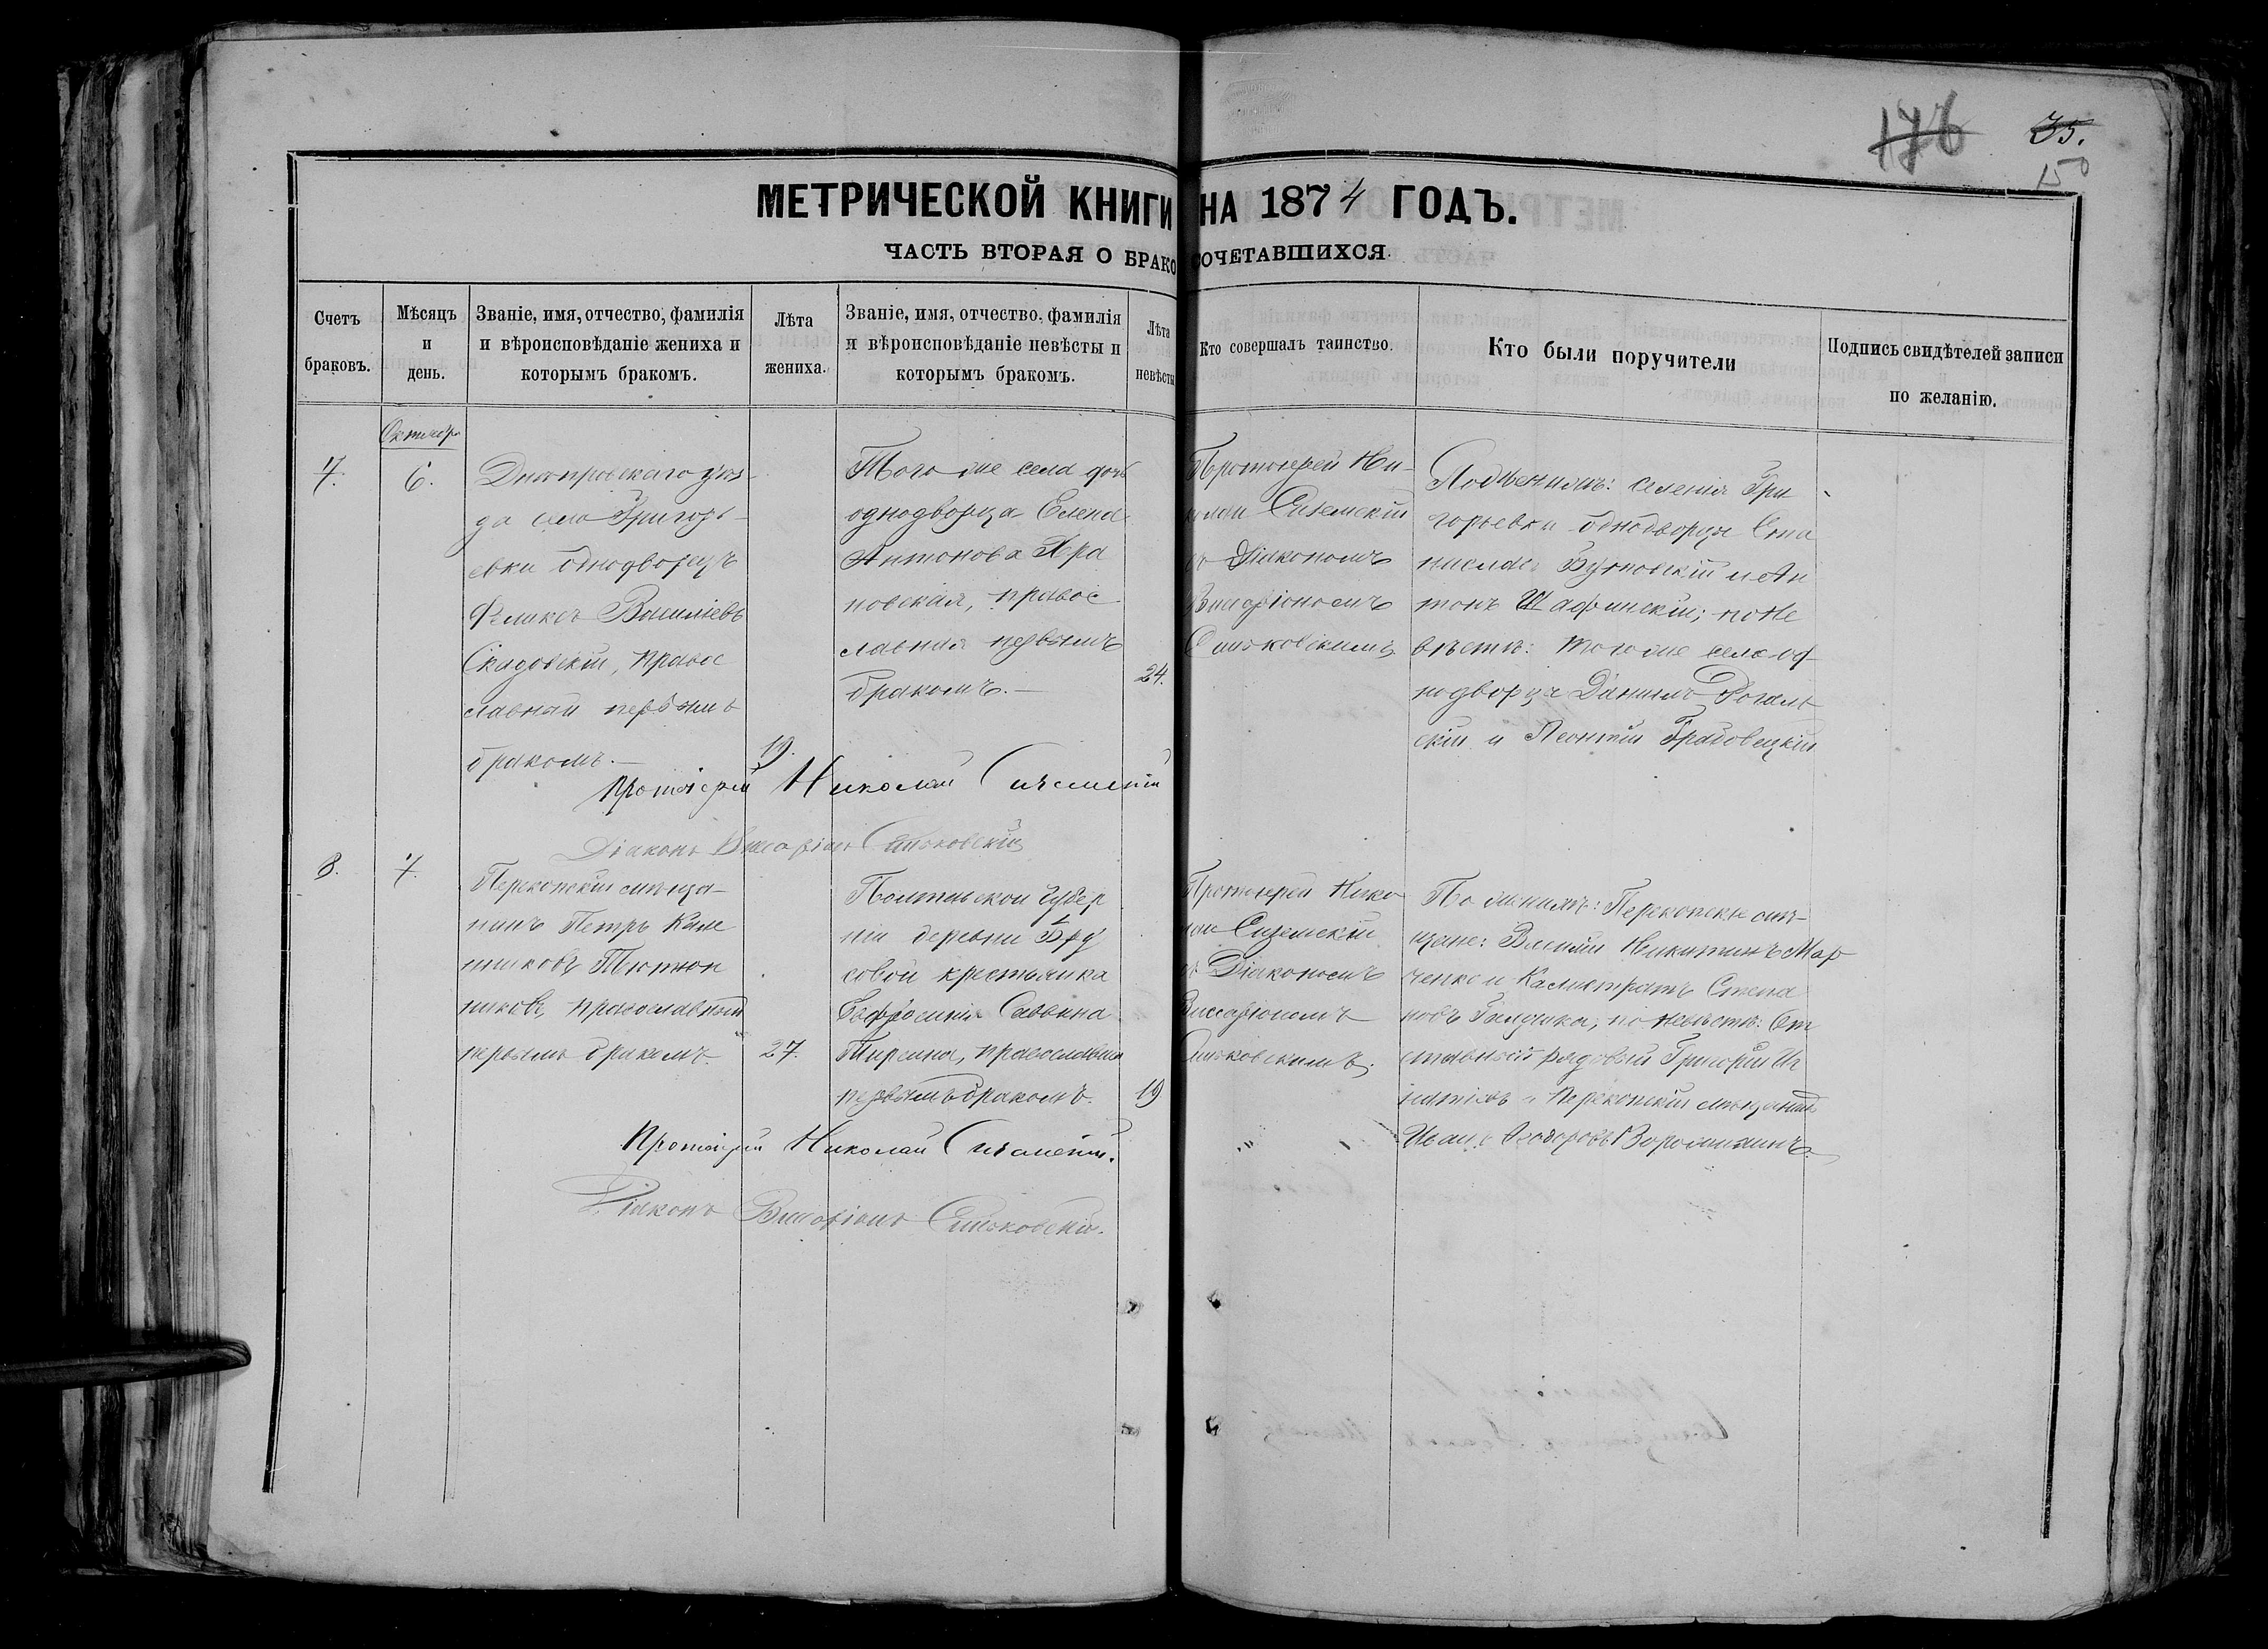 176 35.
150
МЕТРИЧЕСКОЙ КНИГИ НА 1874 ГОДЪ.
ЧАСТЬ ВТОРАЯ О БРАКОСОЧЕТАВШИХСЯ.
Счетъ браковъ.
Мѣсяцъ и день.
Званіе, имя, отчество, фамилія и вѣроисповѣданіе жениха и которымъ бракомъ.
Лѣта жениха.
Званіе, имя, отчество, фамилія и вѣроисповѣданіе невѣсты и которымъ бракомъ.
Лѣта невѣсты
Кто совершалъ таинство.
Кто были поручители
Подпись свидѣтелей записи по желанію.
Октябрь
7.
6.
Днѣпровскаго уѣз-
да села Григорь-
евки однодворецъ
Феликсъ Василіевъ
Скадовскій, правос
лавный первымъ
бракомъ.—
19.
Того же села дочь
однодворца Елена
Антонова
новская, правос
лавная первымъ
бракомъ.—
24.
Протоіерей Ни-
колай
съ Діакономъ
Виссаріономъ
По женихѣ: селенія Гри
горьевки однодворцы Ста
ниславъ и Ан
тонъ Шафинскій; по не
вѣстѣ: того же села од-
нодворцы Даніилъ Рогаль
скій и Леонтій
Протоіерей Николай
Діаконъ Виссаріонъ
8.
7.
Перекопскій мѣща-
нинъ Петръ Кали
никовъ Тютюн
никовъ, православный
первымъ бракомъ.
27.
Полтавской губер
ніи деревни
совой крестьянка
Евфросинія Саввина
православная
первымъ бракомъ.
19
Протоіерей Нико
лай
съ Діакономъ
Виссаріономъ
По женихѣ: Перекопскіе мѣ-
щане: Василій Никитинъ Мар
ченко и Калистратъ Степа
новъ по невѣстѣ: От
ставной рядовой Григорій Иг
натіевъ и Перекопскій мѣщанинъ
Иванъ Ѳеодоровъ
Протоіерей Николай
Діаконъ Виссаріонъ